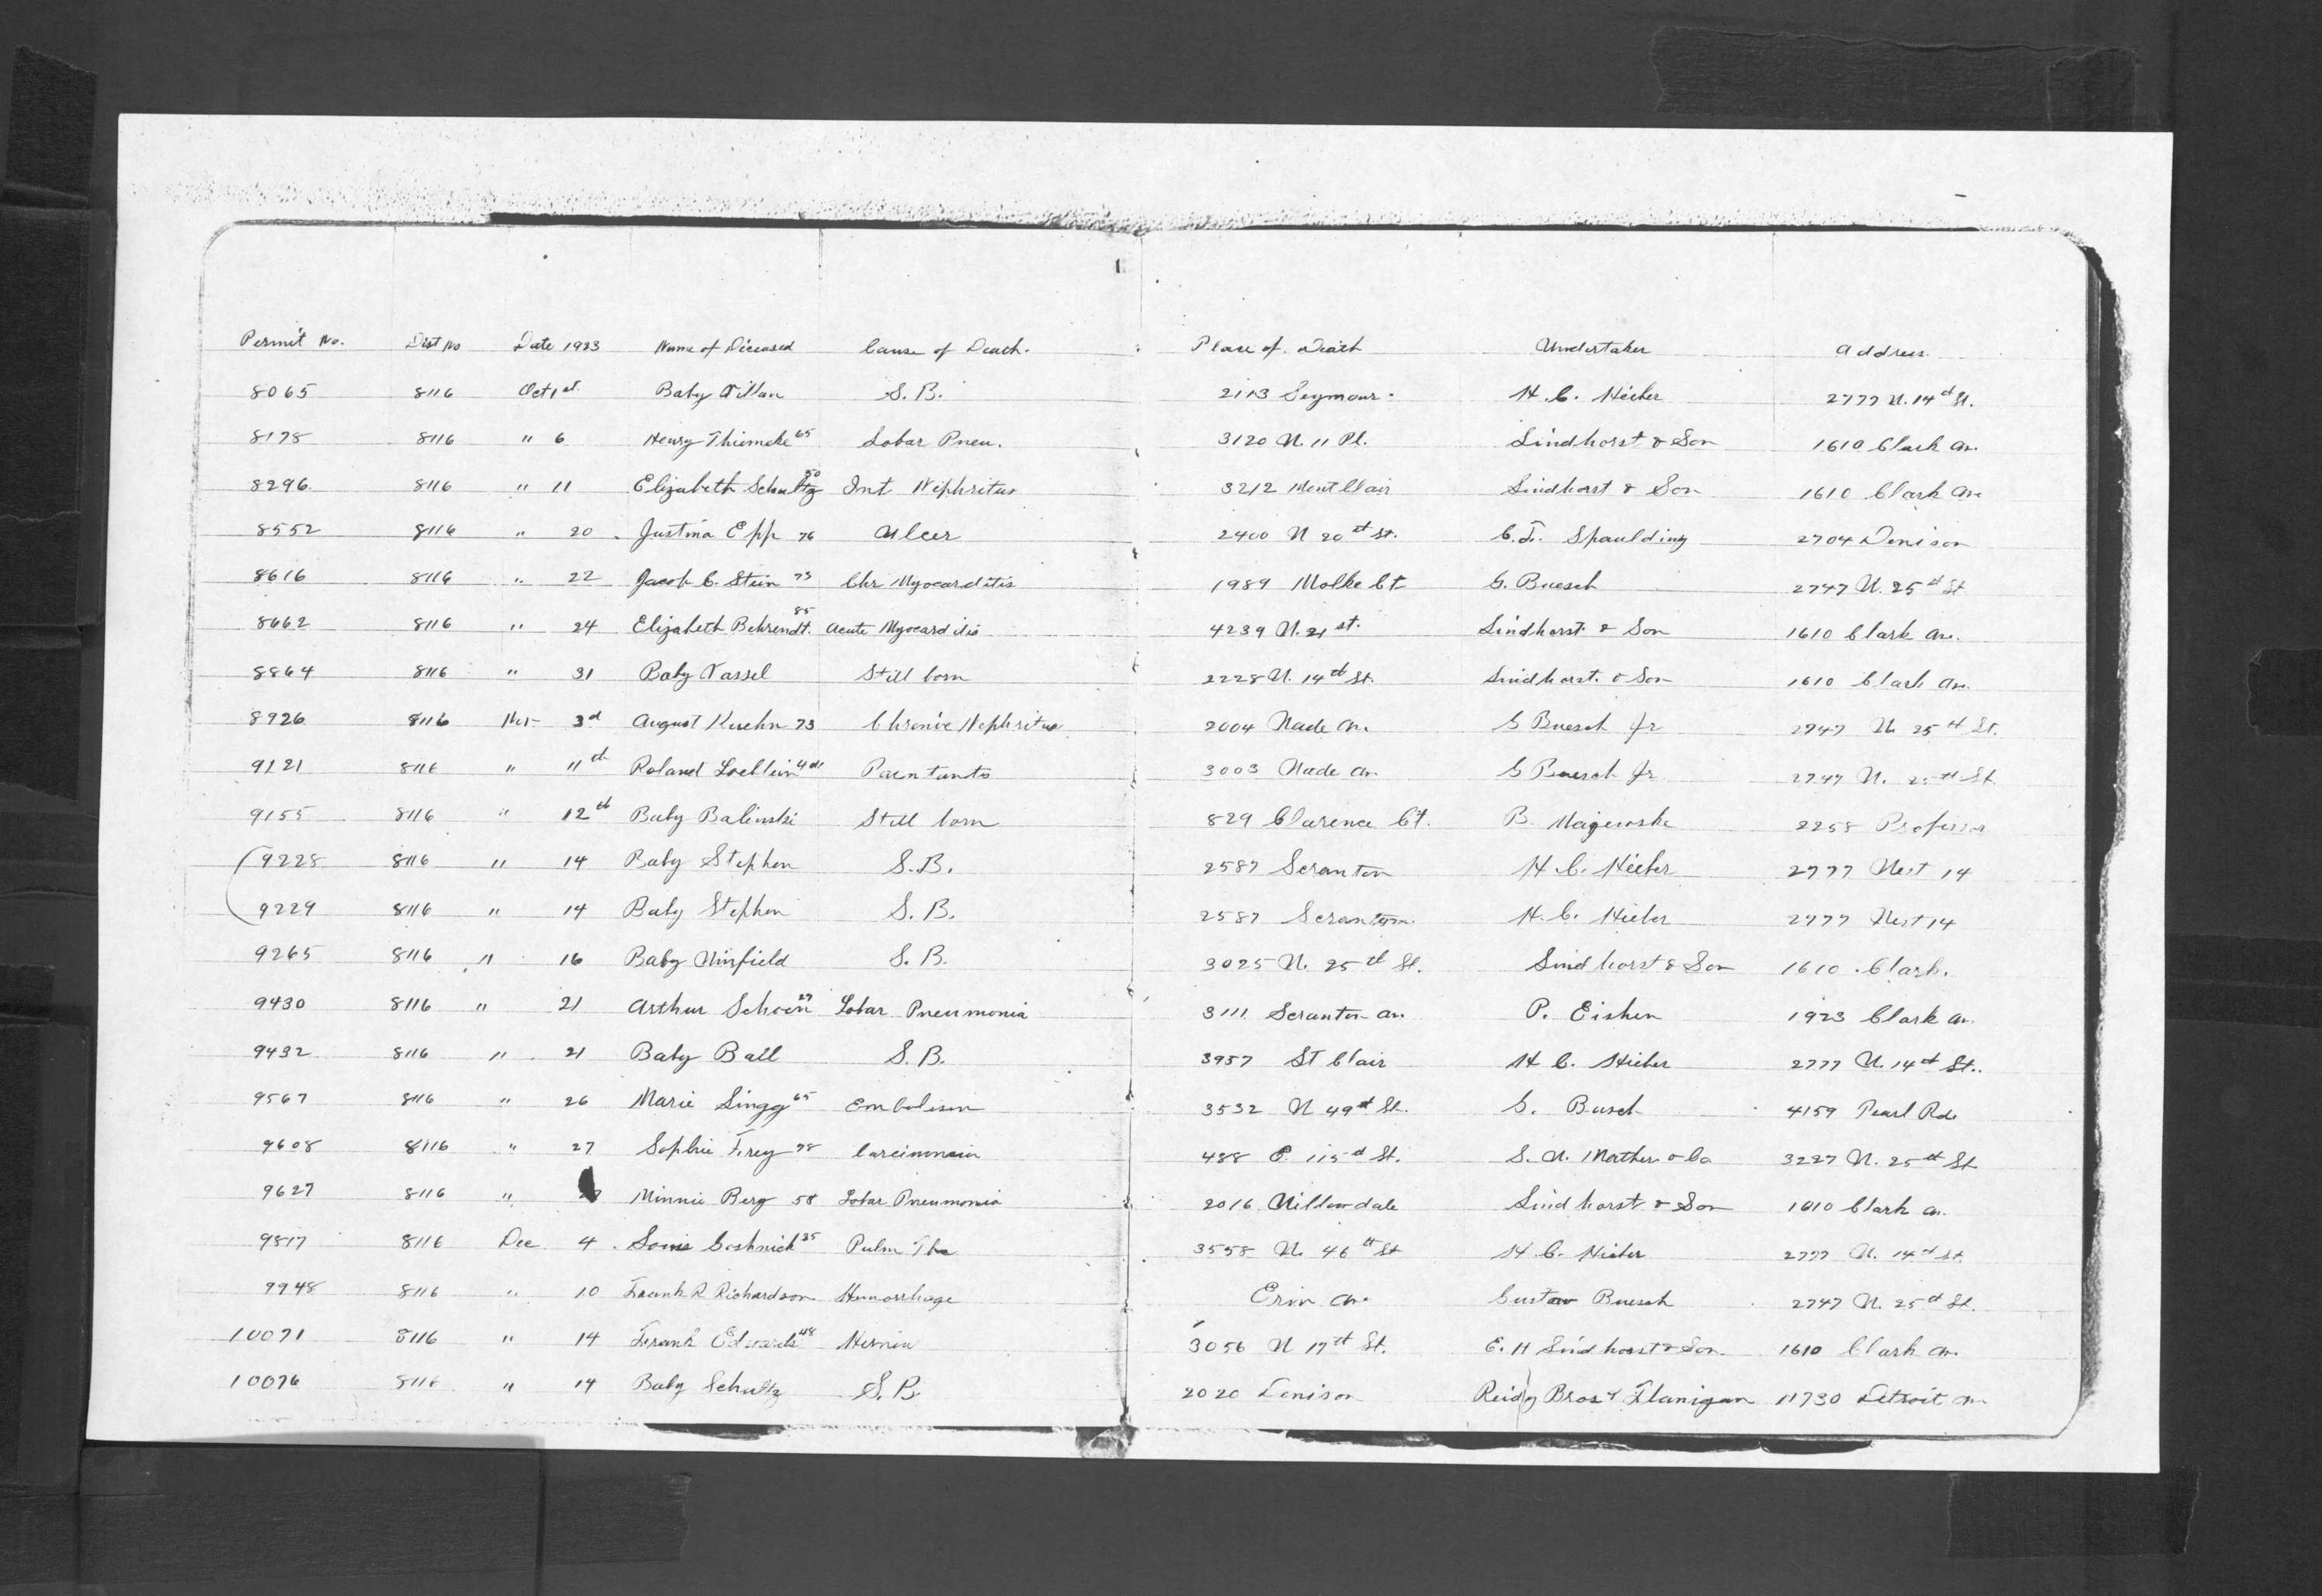 Permit No. Dist No Date 1933 Name of Deceased Cause of Death. Place of Death Undertaker Address
8065 8116 Oct 1st Baby S. B. 2113 Seymour. H. C. Hieber 2777 W. 14th St.
8178 8116 " 6 Henry Thiemeke 65 Lobar Pneu. 3120 W. 11 Pl. Lindhorst & Son 1610 Clark Av.
8296 8116 " 11 Elizabeth Schultz 50 Int Nephritus 3212 Mont Clair Lindhorst & Son 1610 Clark Av
8552 8116 " 20 Justina Epp 76 Ulcer 2400 W 20th St. C. F. Spaulding 2704 Denison
8616 8116 " 22 Jacob C. Stein 73 Chr Myocarditis 1989 Molke Ct G. Buesch 2747 W. 25th St
8662 8116 " 24 Elizabeth Behrendt. 85 Acute Myocarditis 4239 W. 21 st. Lindhorst & Son 1610 Clark Av.
8864 8116 " 31 Baby Vassel Still born 2228 W. 14th St. Lindhorst. & Son 1610 Clark Av.
8926 8116 Nov 3d August Kuehn 73 Chronic Nephritus 2004 Wade Av. G Buesch Jr 2747 W 25th St.
9121 8116 " 11th Roland 3003 Wade Av G Buesch Jr 2747 W. 25th St
9155 8116 " 12th Baby Balinski Still born 829 Clarence Ct. B. 2258 Professor
9228 8116 " 14 Baby Stephen S. B. 2587 Scranton H. C. Hieber 2777 West 14
9229 8116 " 14 Baby Stephen S. B. 2587 Scranton H. C. Hieber 2777 West 14
9265 8116 " 16 Baby Winfield S. B. 3025 W. 25th St. Lindhorst & Son 1610 Clark.
9430 8116 " 21 Arthur Schoen 27 Lobar Pneumonia 3111 Scranton Av. P. Eishen 1923 Clark Av.
9432 8116 " 21 Baby Ball S. B. 3957 St Clair H C. Hieber 2777 W. 14th St.
9567 8116 " 26 Marie Lingg 65 Embolism 3532 W 49th St. G. Busch 4159 Pearl Rd.
9608 8116 " 27 Sophie Frey 78 488 E. 115th St. S. W. Mather & Co 3227 W. 25th St
9627 8116 " Minnie Berg 58 Lobar Pneumonia 2016 Willowdale Lindhorst & Son 1610 Clark Av.
9817 8116 Dec 4 35 Pulm Tba 3558 W. 46th St H C. Hieber 2777 W. 14th St.
9948 8116 " 10 Frank R Richardson Hemorrhage Erin Av. Gustav Buesch 2747 W. 25th St.
10071 8116 " 14 Frank Edwards 48 Hernia 3056 W 17th St. E. H Lindhorst & Son. 1610 Clark Av.
10076 8116 " 14 Baby Schultz S. B. 2020 Denison Reidy Bros & Flanigan 11730 Detroit Av.